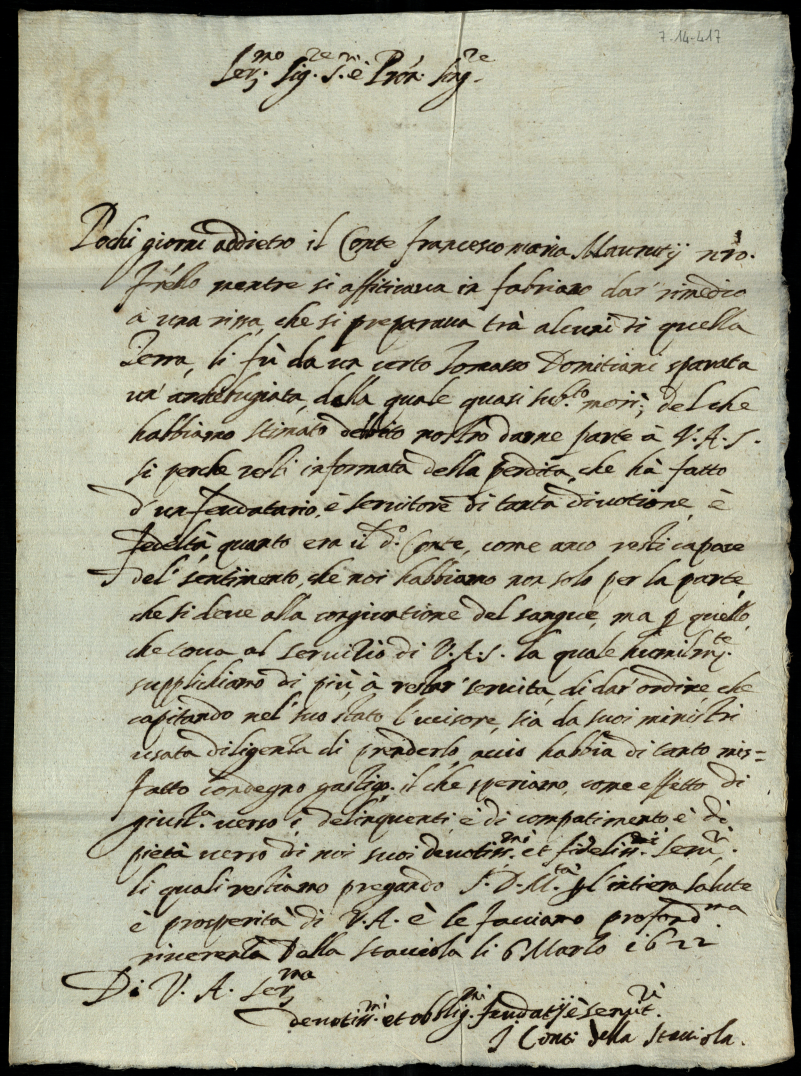 7-14-417
Ser.mo Sig.re S.r è Pròn. Sing.re
Pochi giorni addietro il Conte Francesco maria Maurutij nr̃o.
fr̃ello mentre si affiticava in fabriano dar' rimedio
a una rissa, che si preparava trà alcuni di quella
Terra, li fù da un certo Tomasso Domitiani sparata
un' archibugiata della quale quasi sub.to morì; del che
habbiamo stimato debito nostro darne parte à V.A.S.
si perche resti informata della perdita, che hà fatto
d'un feudatario, è servitore di tanta divotione, è
fedeltà, quanto era il d.o Conte, come anco resti capace
del' sentimento, che noi habbiamo non solo per la parte,
che si deve alla congiuntione del sangue, ma p quello,
che tocca al servitio di V.A.S. la quale humilm.te
supplichiamo di più à restar' servita, di dar' ordine, che
capitando nel' suo stato l'uccisore, sia da suoi ministri
usata diligenza di prenderlo, acciò habbia di tanto mis=
fatto condegno gastigo. il che speriamo, come effetto di
giust.a verso i delinquenti, è di compatimento è di
pietà verso di noi suoi devotiss.mi et fideliss.mi Ser.ri.
li quali restiamo pregando S.D.M.tà p l'intiera salute
è prosperità di V.A. è le facciamo profond.ma
riverenza Della Stacciola li 6 Marzo 1622
Di V. A. Ser.ma
devotiss.mi et obblig.mi feudatij è servit.ri
I Conti della Stacciola.